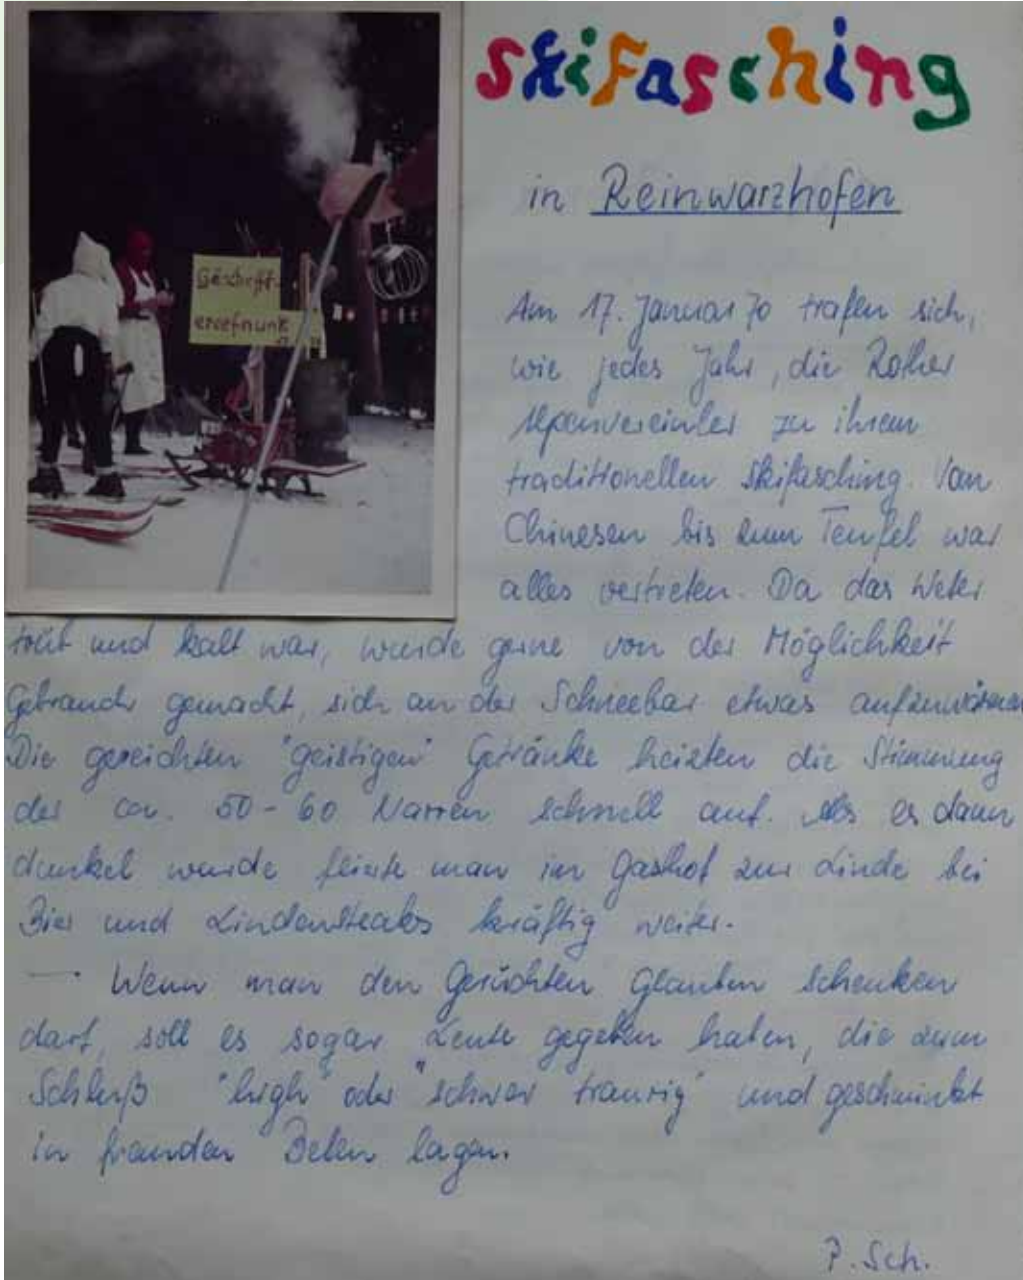 Skifasching
in Reinwarzhofen
Geschäfft-
ereefnunk
Am 17. Januar 70 trafen sich,
wie jedes Jahr, die Rother
Alpenvereinler zu ihrem
traditionellen Skifasching. Vom
Chinesen bis zum Teufel war
alles vertreten. Da das Wetter
trüb und kalt war, wurde gerne von der Möglichkeit
Gebrauch gemacht, sich an der Schneebar etwas aufzuwärmen
Die gereichten "geistigen" Getränke heizten die Stimmung
der ca. 50-60 Narren schnell auf. Als es dann
dunkel wurde feierte man im Gasthof zur Linde bei
Bier und Lindensteaks kräftig weiter.
— Wenn man den Gerüchten Glauben schenken
darf, soll es sogar Leute gegeben haben, die zum
Schluß "high" oder "schwer traurig" und geschminkt
in fremden Betten lagen.
P. Sch.